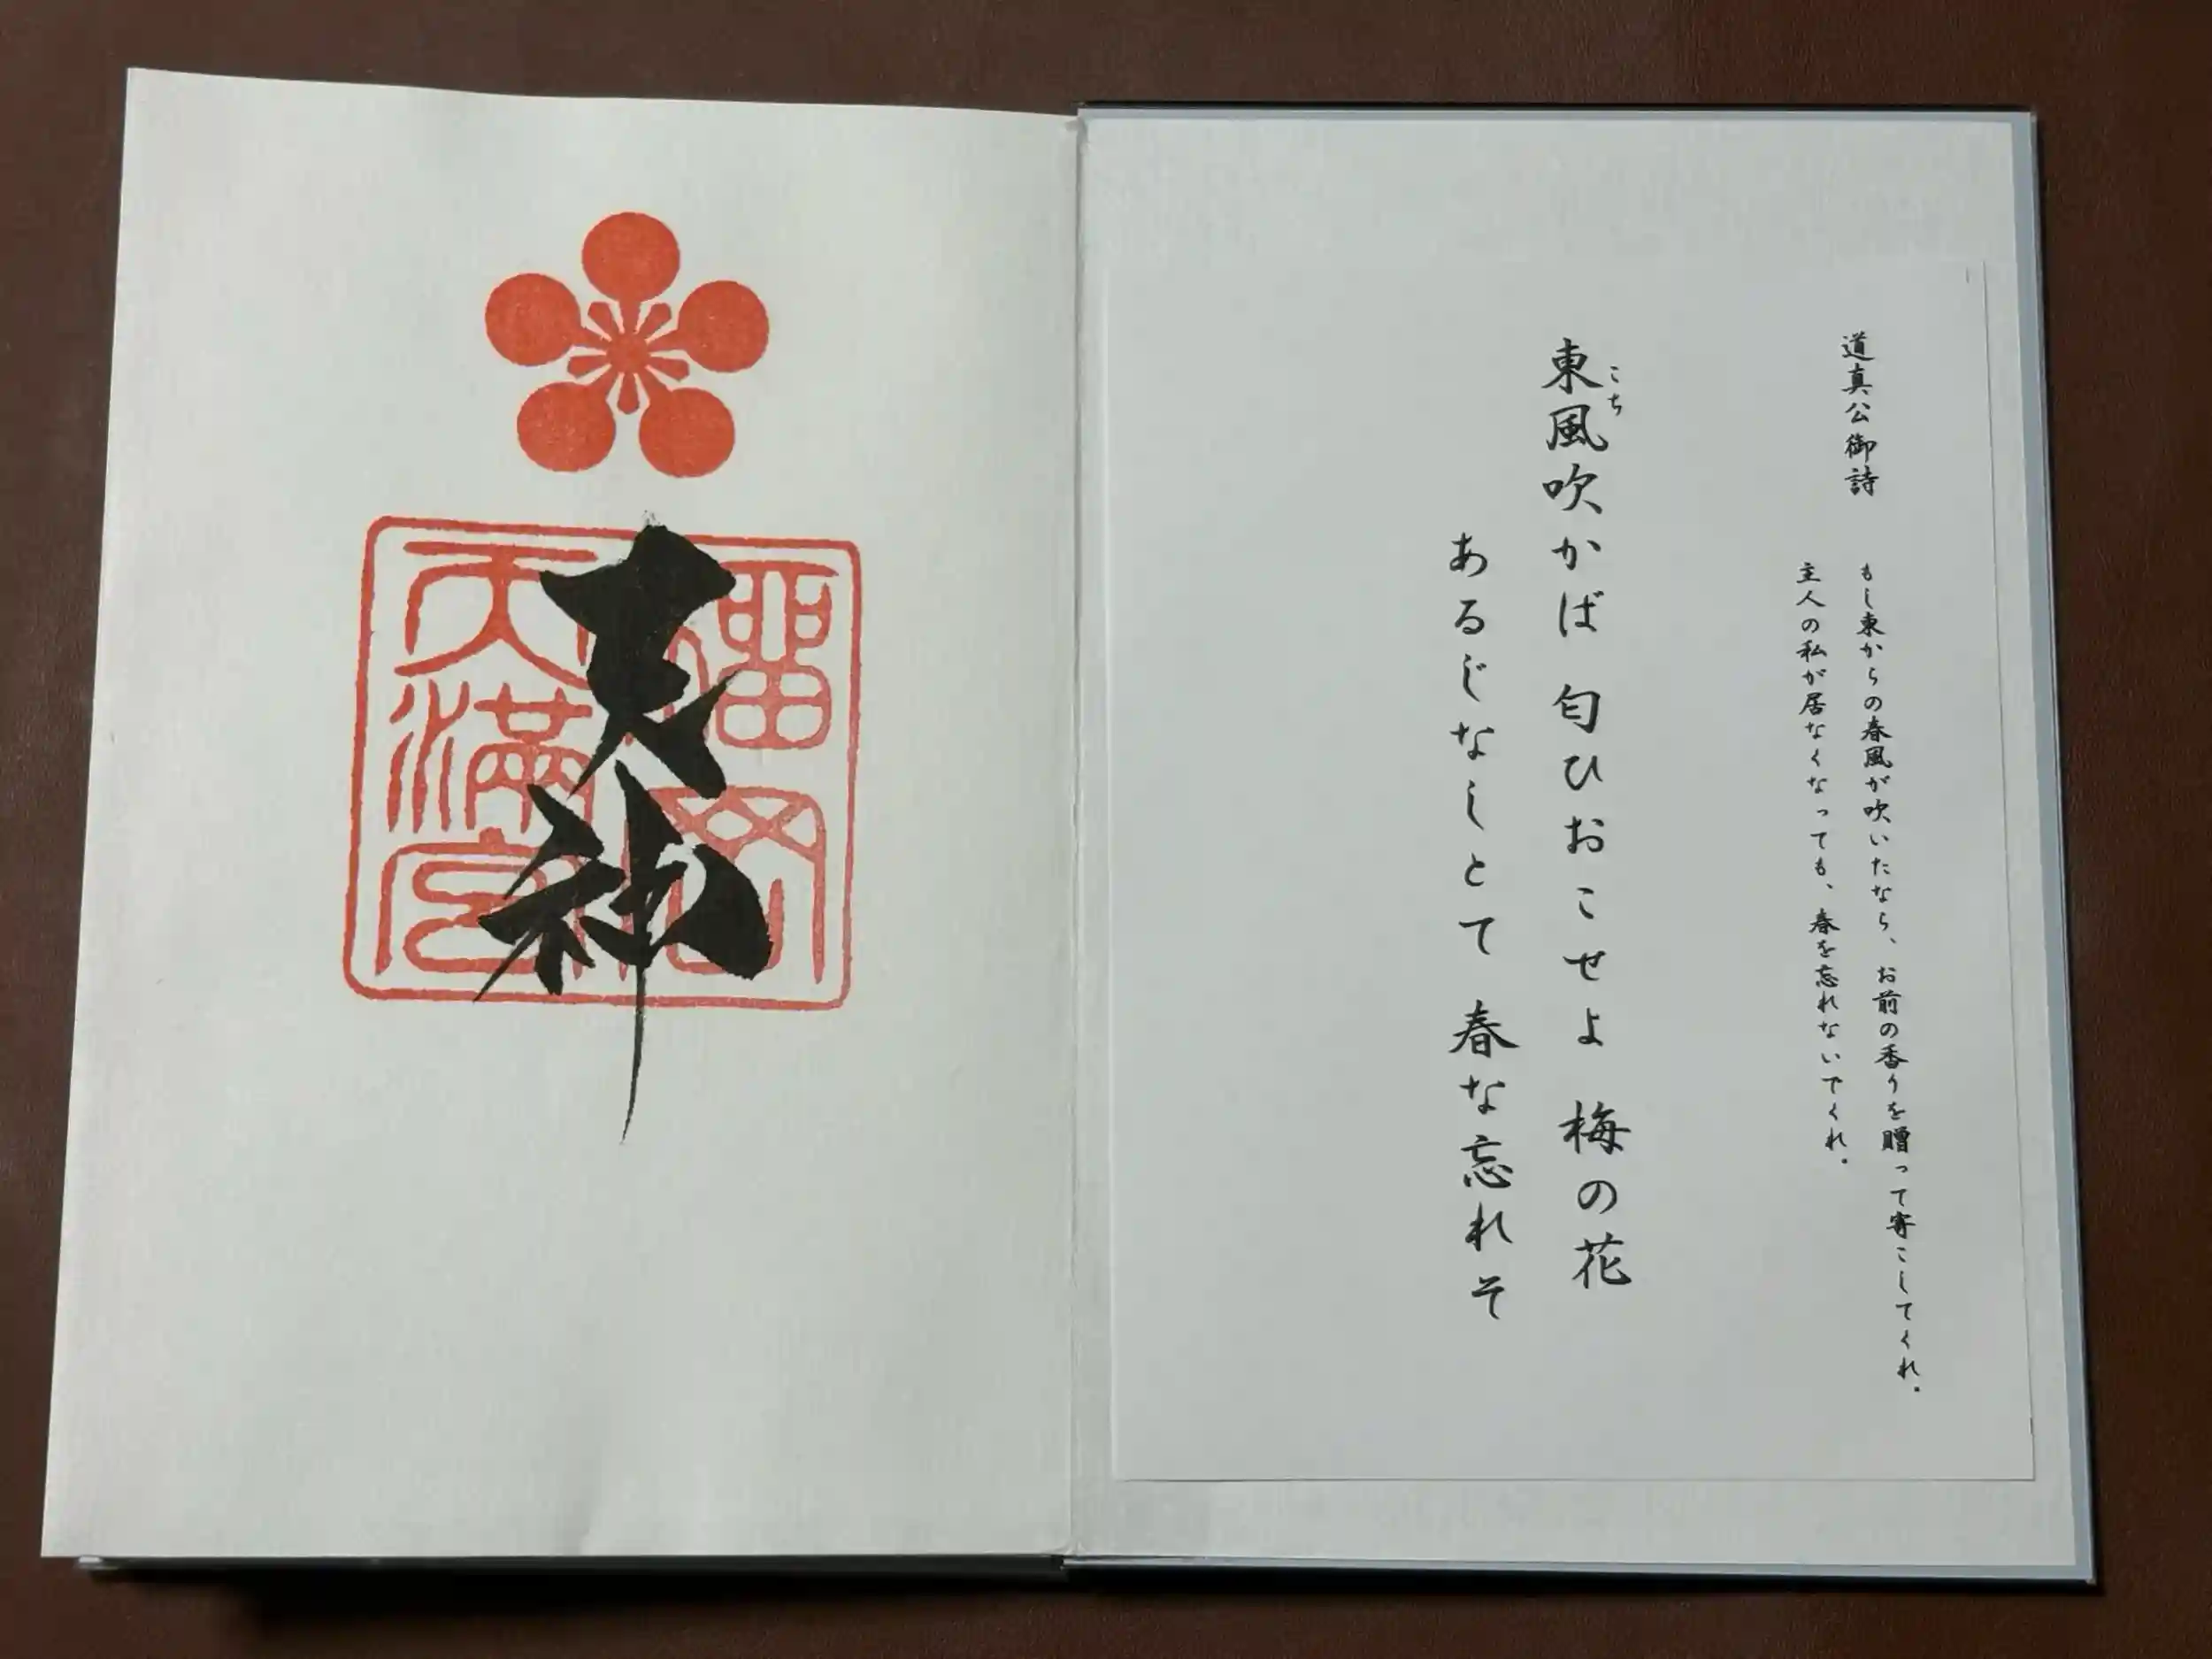 道真公御詩
もし東からの春風が吹いたなら、お前の香りを贈って寄こしてくれ。
主人の私が居なくなっても、春を忘れないでくれ。
こち
東風吹かば 匂ひおこせよ 梅の花
あるじなしとて 春な忘れそ
天神
榴岡
天満宮